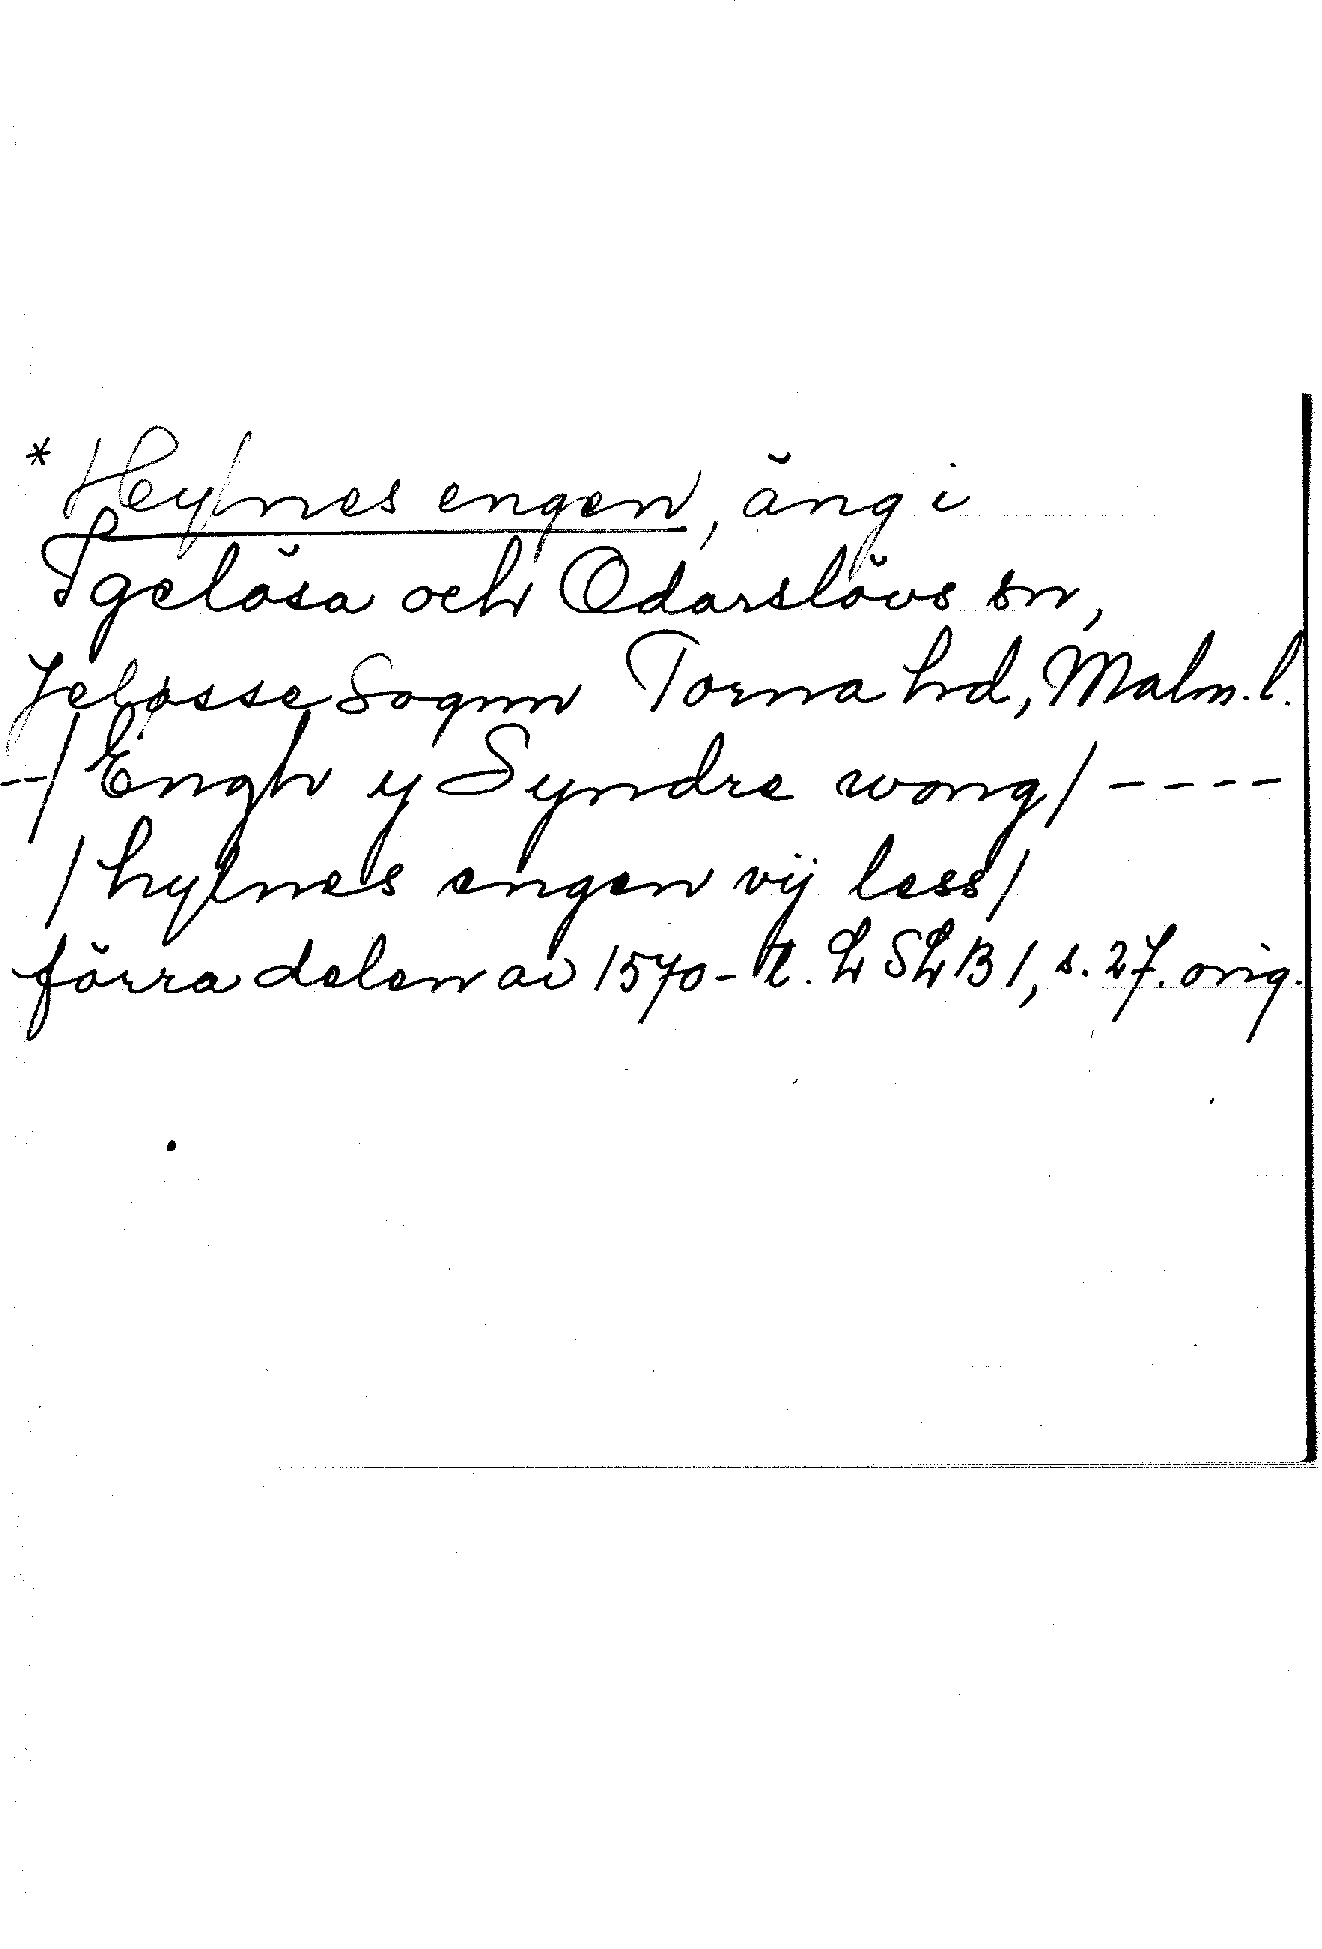 * Hylnes engen, äng i
Igelösa och Odarslövs sn,
Jeløsse Sognn Torna hd, Malm. l.
--/ Engh y Syndre wong/ ----
/ hylnes engen vij less/
förra delen av 1570- t. L S L B 1, s. 27. orig.